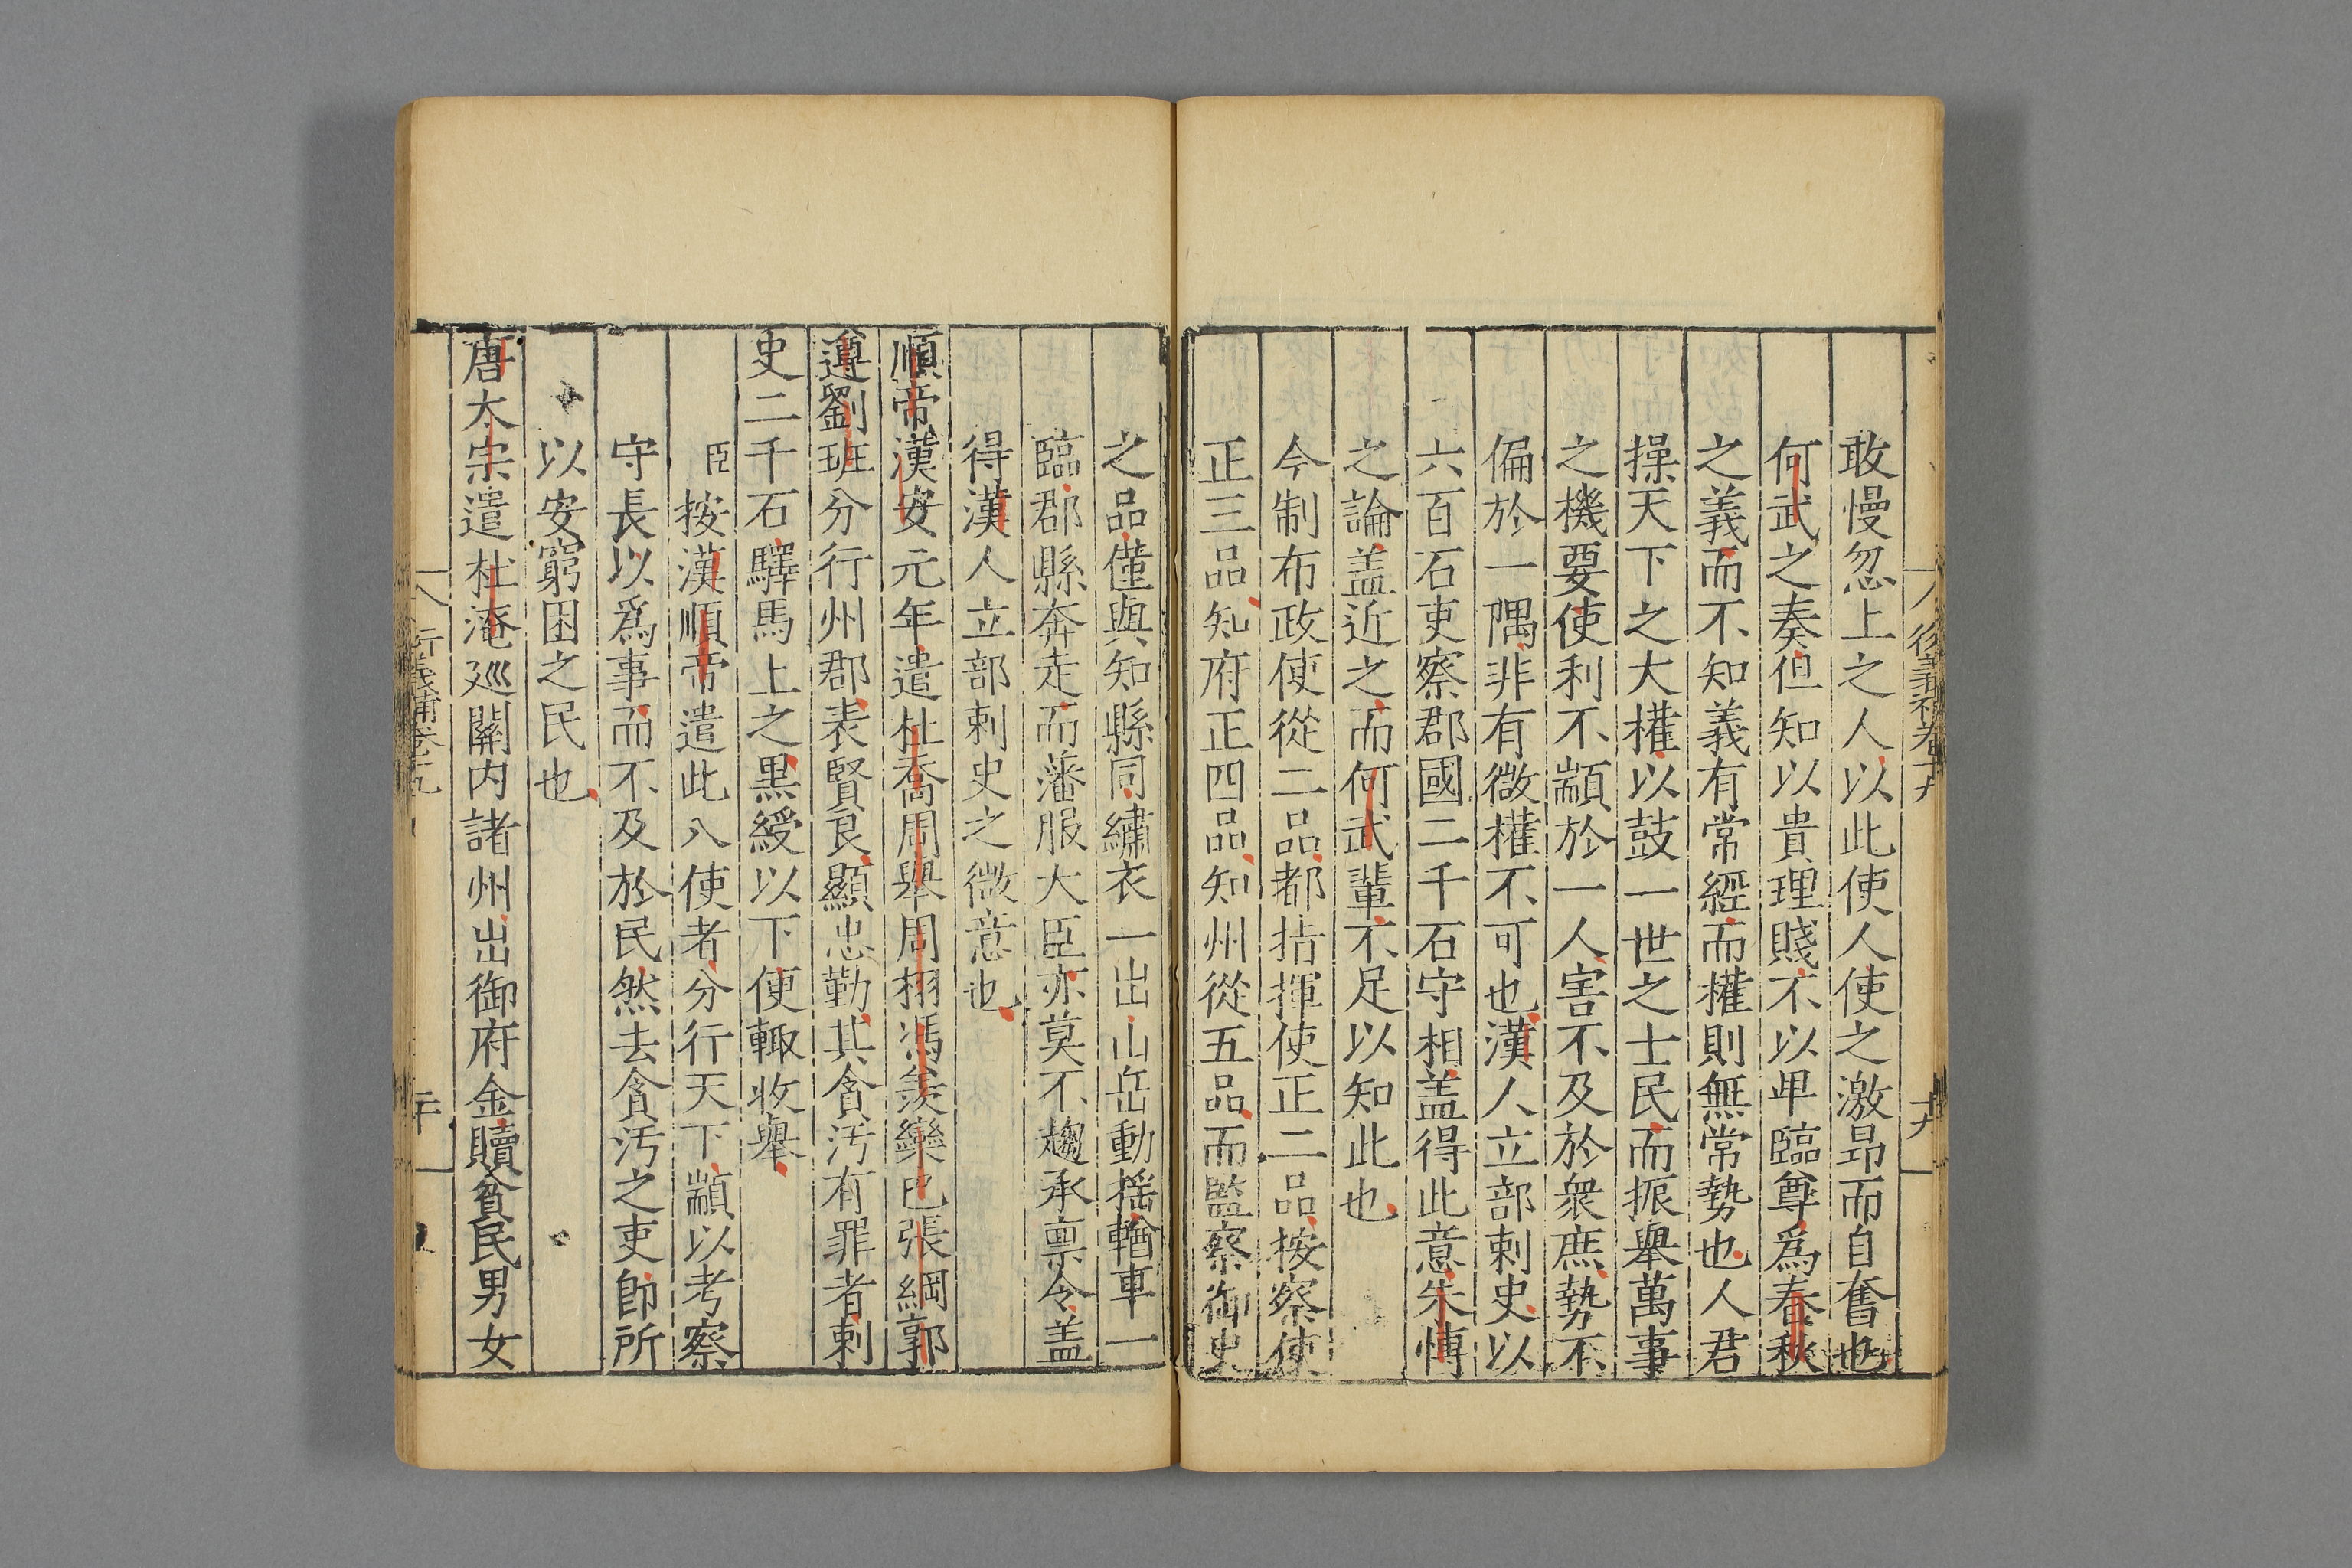 敢慢忽上之人以此使人使之激昂而自奮也
何武之奏但知以貴理賤不以卑臨尊爲春秋
之義而不知義有常經而權則無常勢也人君
操天下之大權以鼓一世之士民而振舉萬事
之機要使利不顓於一人害不及於衆庶勢不
偏於一隅非有微權不可也漢人立部刺史以
六百石吏察郡國二千石守相盖得此意朱愽
之論盖近之而何武輩不足以知此也
今制布政使從二品都指揮使正二品按察使
正三品知府正四品知州從五品而監察御史
之品僅與知縣同繡衣一出山岳動摇輶車一
臨郡縣奔走而藩服大臣亦莫不趨承禀令盖
得漢人立部刺史之微意也
順帝漢安元年遣杜喬周舉周栩馮羨欒巴張綱郭
遵劉班分行州郡表賢良顯忠勤其貪汚有罪者刺
史二千石驛馬上之黑綬以下便輙收舉
臣按漢順帝遣此八使者分行天下顓以考察
守長以爲事而不及於民然去貪汚之吏卽所
以安窮困之民也
唐太宗遣杜淹廵關内諸州出御府金贖貧民男女